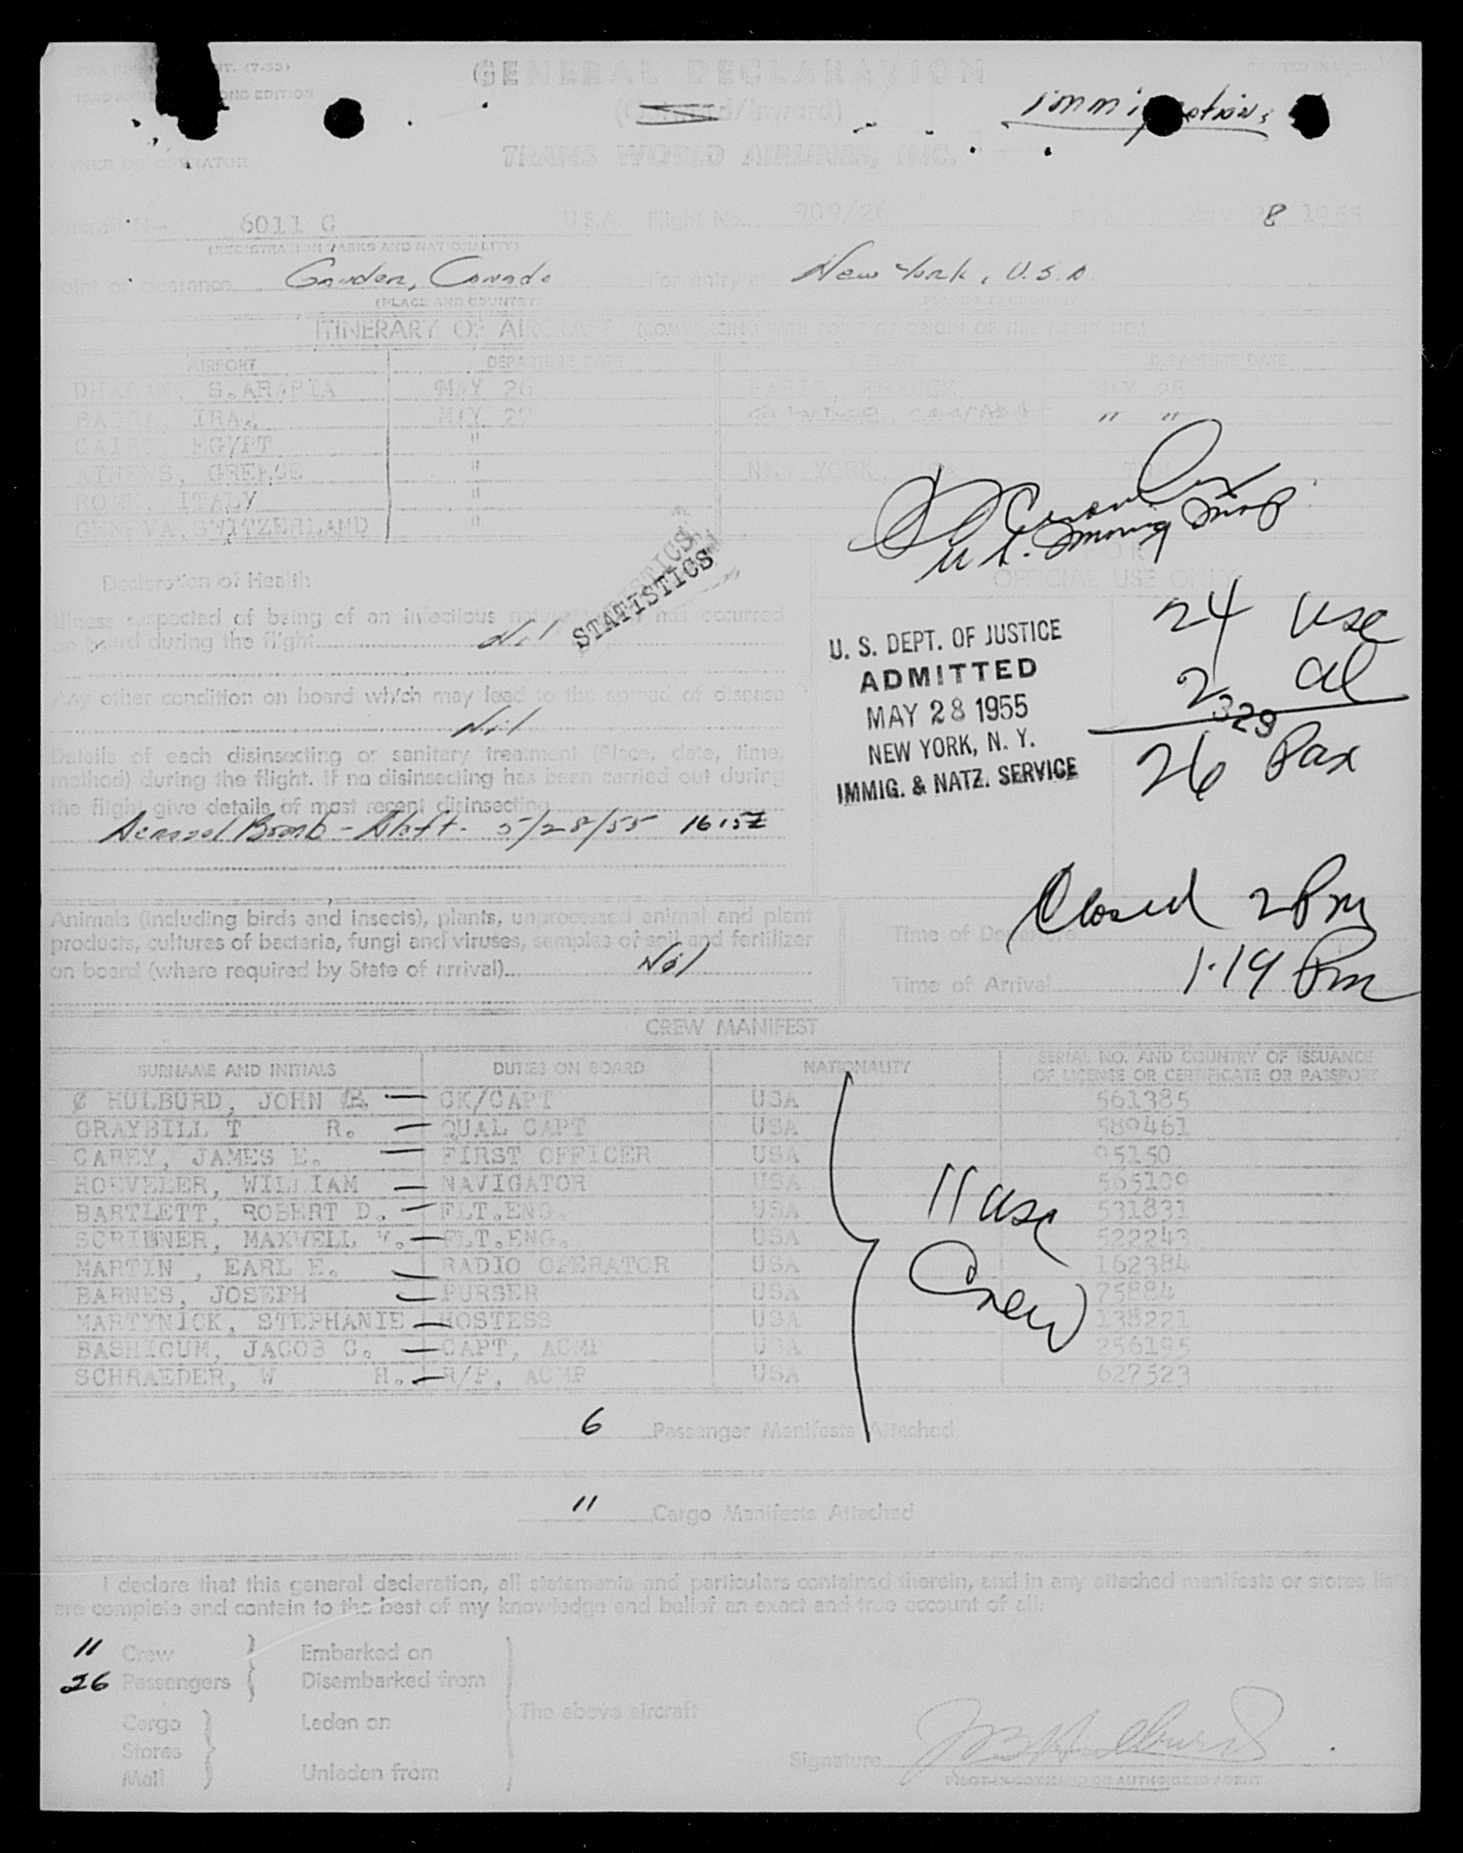 GENERAL DECLARATION
(Outward/Inward)
Immigration
TRANS WORLD AIRLINES, INC.
OWNER OR OPERATOR
6011 C U.S.A. Flight No. 909/26 8 1955
(REGISTRATION MARKS AND NATIONALITY)
Point of clearance Gander, Canada For entry at New York, U.S.A.
(PLACE AND COUNTRY)
ITINERARY OF AIRCRAFT
AIRPORT DEPARTURE DATE DEPARTURE DATE
DHAHRAN, S.ARABIA MAY 26 PARIS, FRANCE MAY 28
IRAQ MAY 27 " "
CAIRO, EGYPT "
ATHENS, GREECE " NEW YORK
ROME, ITALY "
GENEVA, SWITZERLAND "
STATISTICS
Declaration of Health
OFFICIAL USE ONLY
Illness suspected of being of an infectious nature has occurred
on board during the flight
Any other condition on board which may lead to the spread of disease
Nil
Details of each disinsecting or sanitary treatment (Place, date, time,
method) during the flight. If no disinsecting has been carried out during
the flight give details of most recent disinsecting
Aerosol Bomb - Aloft - 5/28/55 1615Z
U. S. DEPT. OF JUSTICE
ADMITTED
MAY 28 1955
NEW YORK, N. Y.
IMMIG. & NATZ. SERVICE
24 USC
2 al
329
26 Pax
Animals (including birds and insects), plants, unprocessed animal and plant
products, cultures of bacteria, fungi and viruses, samples of soil and fertilizer
on board (where required by State of arrival) Nil
Closed 2 Pm
Time of Departure
Time of Arrival 1.19 Pm
CREW MANIFEST
SURNAME AND INITIALS DUTIES ON BOARD NATIONALITY SERIAL NO. AND COUNTRY OF ISSUANCE
OF LICENSE OR CERTIFICATE OR PASSPORT
Ø HULBURD, JOHN B. — CK/CAPT USA 561385
GRAYBILL T R. — QUAL CAPT USA 589461
CAREY, JAMES E. — FIRST OFFICER USA 95150
HOEVELER, WILLIAM — NAVIGATOR USA 565109
BARTLETT, ROBERT D. — FLT.ENG. USA 531831
SCRIBNER, MAXWELL W. — FLT.ENG. USA 522243
MARTIN , EARL E. — RADIO OPERATOR USA 162384
BARNES, JOSEPH — PURSER USA 75884
MARTYNICK, STEPHANIE — HOSTESS USA 138221
BASHICUM, JACOB C. — CAPT, ACMP USA 256195
SCHRAEDER, W H. — R/P, ACMP USA 627523
11 USC
Crew
6 Passenger Manifests Attached
11 Cargo Manifests Attached
I declare that this general declaration, all statements and particulars contained therein, and in any attached manifests or stores list
are complete and contain to the best of my knowledge and belief an exact and true account of all:
11 Crew Embarked on
26 Passengers Disembarked from
The above aircraft
Cargo Laden on
Stores
Mail Unladen from
Signature JB Hulburd
PILOT-IN-COMMAND OR AUTHORIZED AGENT